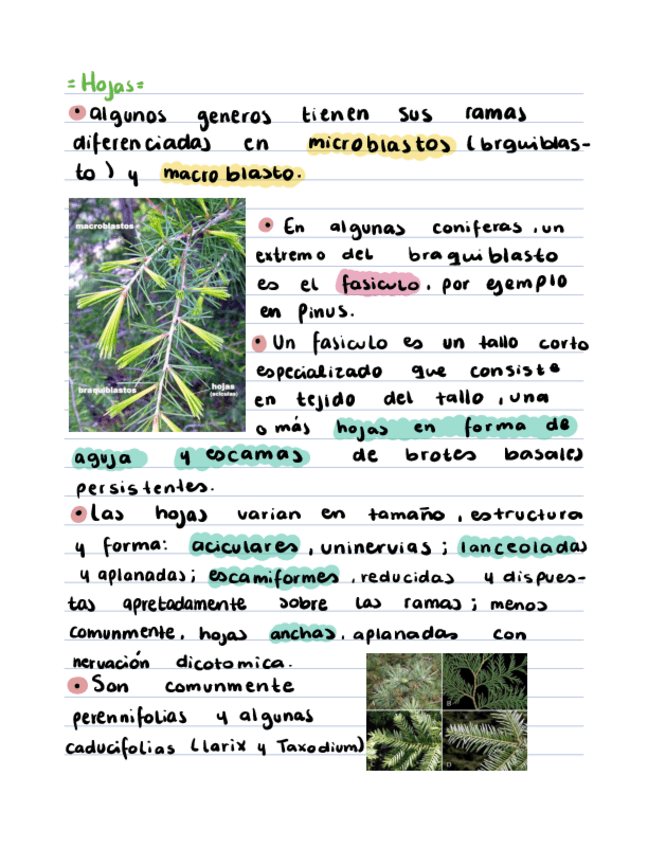 = Hojas=
• algunos generos tienen sus ramas
diferenciadas en microblastos (brquiblas-
to) y macroblasto.
macroblastos
braquiblastos
hojas
(acículas)
• En algunas coniferas, un
extremo del braquiblasto
es el fasiculo, por ejemplo
en Pinus.
• Un fasiculo es un tallo corto
especializado que consiste
en tejido del tallo, una
o más hojas en forma de
aguja y escamas de brotes basales
persistentes.
• Las hojas varian en tamaño, estructura
y forma: aciculares, uninervias; lanceoladas
y aplanadas; escamiformes, reducidas y dispues-
tas apretadamente sobre las ramas; menos
comunmente, hojas anchas, aplanadas con
nervación dicotomica.
• Son comunmente
perennifolias y algunas
caducifolias (Larix y Taxodium)
B
D